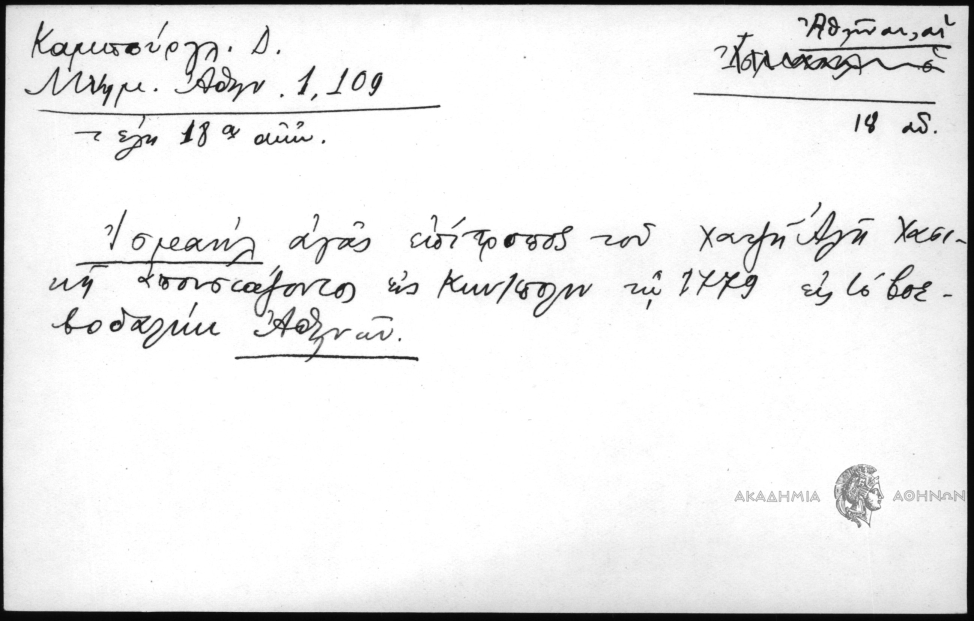 Καμπούργλ. Δ.
Μνημ. Ἀθην. 1, 109
τέλη 18 ου αἰῶν.
Ἀθῆναι, αἱ
18 αἰ.
Ἰσμαὴλ ἀγᾶς ἐπίτροπος τοῦ χατζῆ Ἀλῆ Χασε-
κῆ ἀπουσιάζοντος εἰς Κων/πολιν τῷ 1779 εἰς τὸ βοε-
βοδαλίκι Ἀθηνῶν.
ΑΚΑΔΗΜΙΑ ΑΘΗΝΩΝ